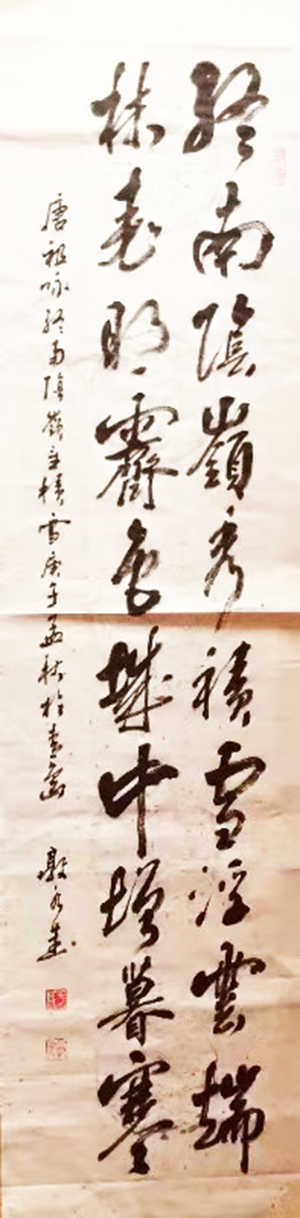 終南陰嶺秀積雪浮雲端
林表明霽色城中增暮寒
唐祖咏終南陰嶺積雪庚午孟秋於青島